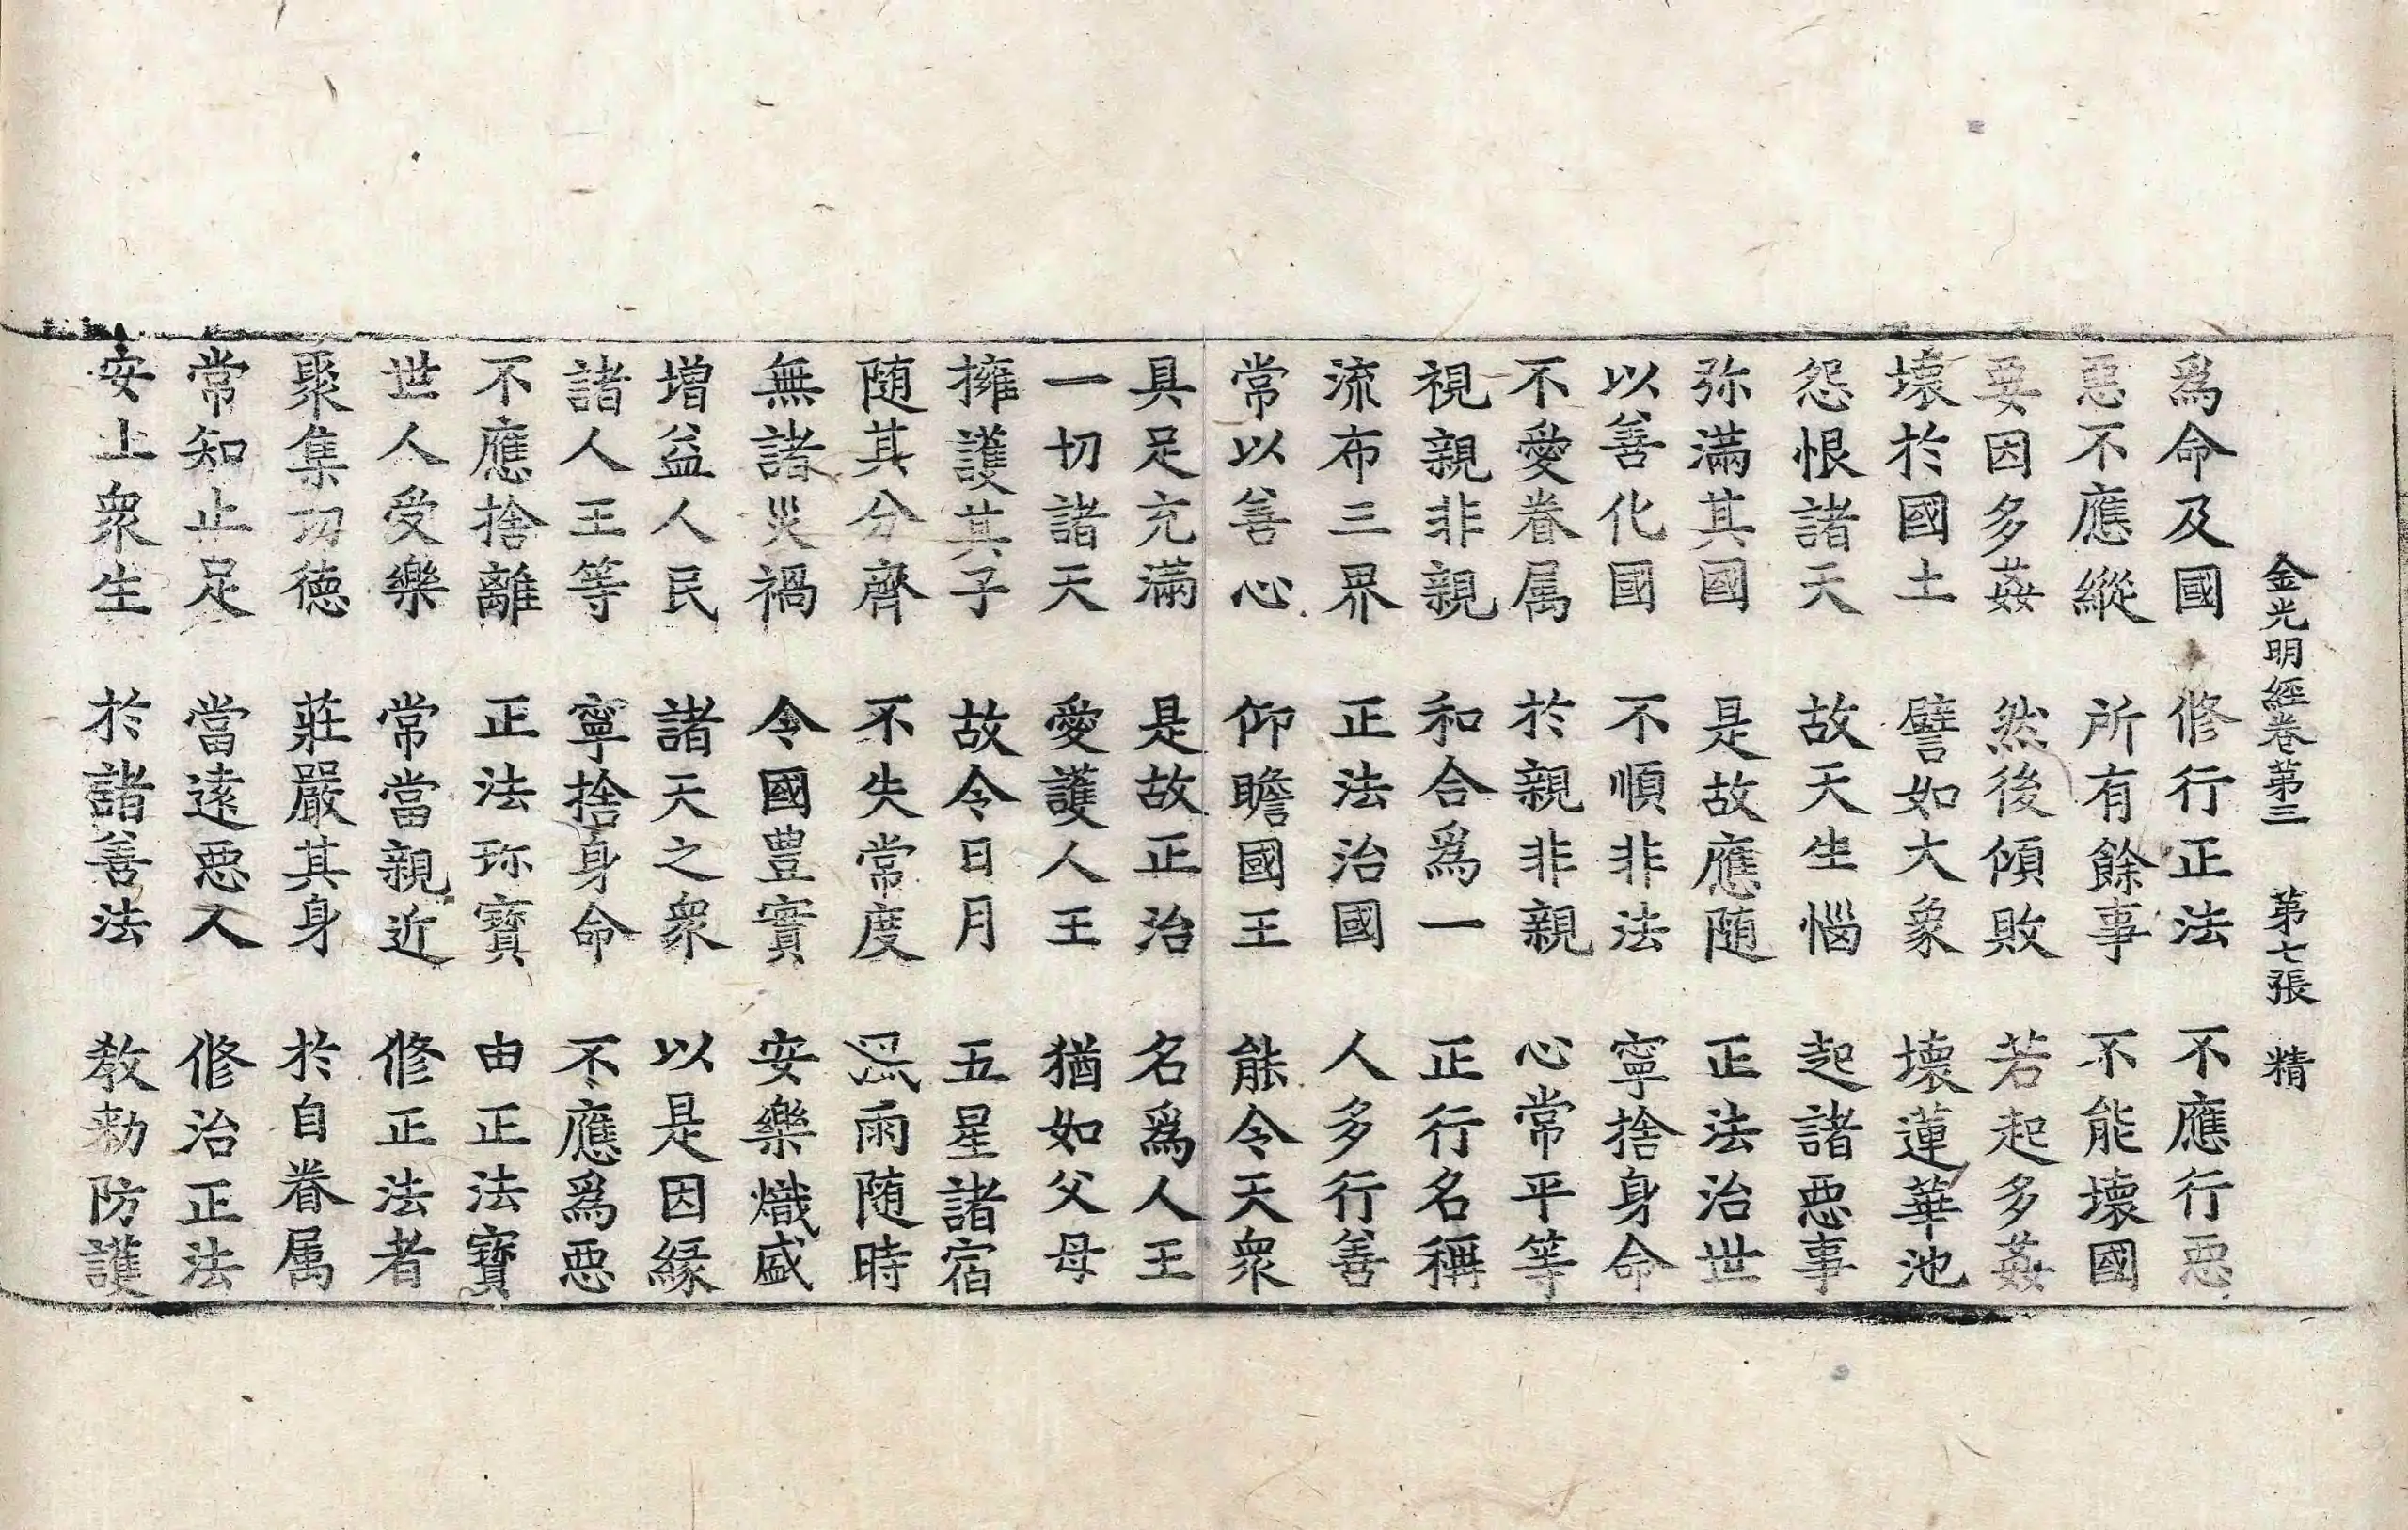 金光明經卷第三　第七張　精
爲命及國　修行正法　不應行惡
惡不應縱　所有餘事　不能壞國
要因多姦　然後傾敗　若起多姦
壞於國土　譬如大象　壞蓮華池
怨恨諸天　故天生惱　起諸惡事
弥滿其國　是故應随　正法治世
以善化國　不順非法　寧捨身命
不愛眷属　於親非親　心常平等
視親非親　和合爲一　正行名稱
流布三界　正法治國　人多行善
常以善心　仰瞻國王　能令天衆
具足充滿　是故正治　名爲人王
一切諸天　愛護人王　猶如父母
擁護其子　故令日月　五星諸宿
随其分齊　不失常度　風雨随時
無諸災禍　令國豊實　安樂熾盛
增益人民　諸天之衆　以是因緣
諸人王等　寧捨身命　不應爲惡
不應捨離　正法珎寶　由正法寶
世人受樂　常當親近　修正法者
聚集功德　莊嚴其身　於自眷属
常知止足　當遠惡人　修治正法
安止衆生　於諸善法　教勑防護